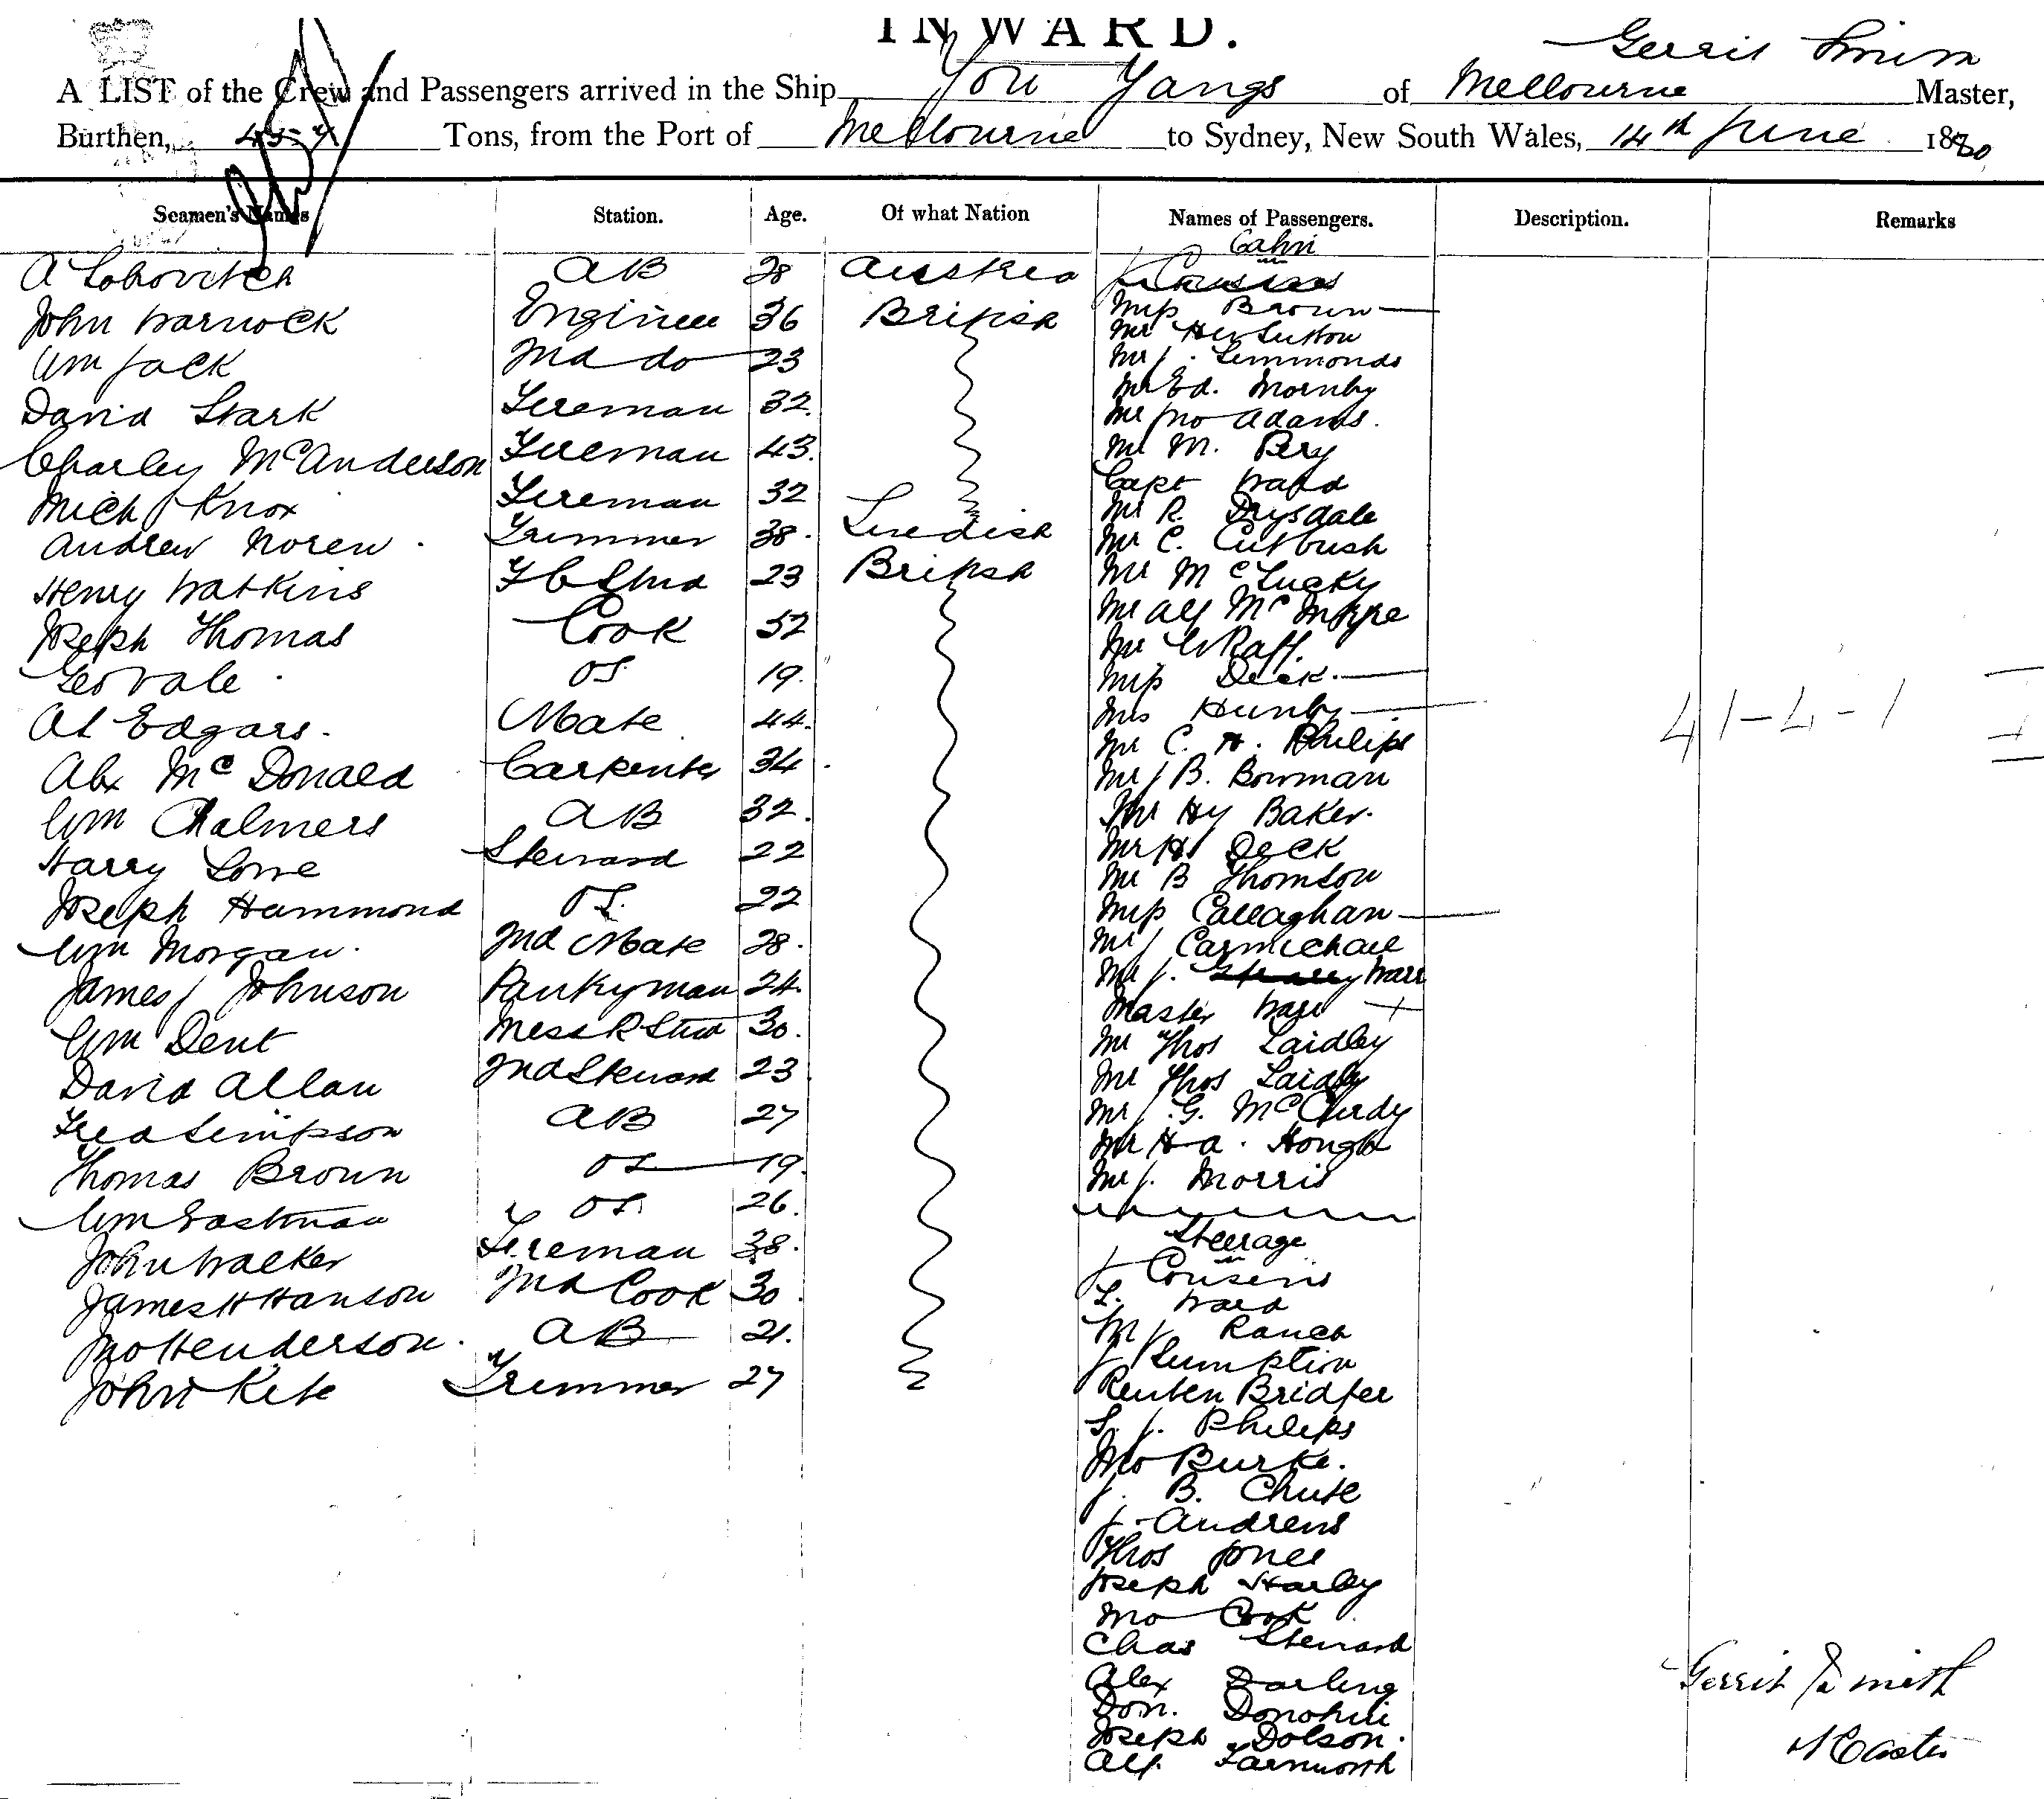 INWARD.
Gerrit Smith
A LIST of the Crew and Passengers arrived in the Ship You Yangs of Melbourne Master,
Burthen, 457 Tons, from the Port of Melbourne to Sydney, New South Wales, 14th June 1880
Seamen's Names Station. Age. Of what Nation Names of Passengers. Description. Remarks
Cabin
A Lobovitch AB 28 Austria
John Warnock Engineer 36 British Miss Brown
Mr Hy Sutton
Wm Jack 2nd do 23 Mr J. Simmonds
Mr Ed. Hornby
David Stark Fireman 32 Mr Jno Adams.
Charley McAnderson Fireman 43. Mr M. Pery
Capt Ward
Mich J Knox Fireman 32 Mr R. Drysdale
Andrew Noren Trimmer 38. Swedish Mr C. Cutbush
Henry Watkins F C Stwd 23 British Mr McLucky
Mr Alf McIntyre
Joseph Thomas Cook 52 Mr W Raff.
Geo Vale OS 19. Miss Deck.
Mrs Hunby
Al Edgars. Mate 44. Mr C. H. Philips 41-4-1
Alex McDonald Carpenter 34. Mr J B. Bowman
Wm Chalmers AB 32. Mr Hy Baker.
Harry Lowe Steward 22 Mr H Deck
Mr B Thomson
Joseph Hammond OS. 22 Miss Callaghan
Wm Morgan. 2nd Mate 28. Mr J Carmichael
James J Johnson Punkyman 24. Mr J. Warr
Master Warr
Wm Dent Mess R Stwd 30. Mr Thos Laidley
David Allan 2nd Steward 23 Mr Thos Laidly
Fred Simpson AB 27 Mr J. G. McCurdy
Mr H A. Hough
Thomas Brown OS 19. Mr J. Morris
Wm Eastman OS. 26.
John Walker Fireman 38. Steerage
James H Hanson 2nd Cook 30. J Cousens
L. Ward
Jno Henderson. AB 21. M J Ranch
J Sumption
John Kite Trimmer 27 Reuben Bridfer
S. J. Philips
Jno Burke.
J. B. Chute
J. Andrews
Thos Jones
Joseph Harley
Jno Cook
Chas Steward
Alex Darling
Don. Donohue
Joseph Dolson.
Alf. Farnworth
Gerrit Smith
Master